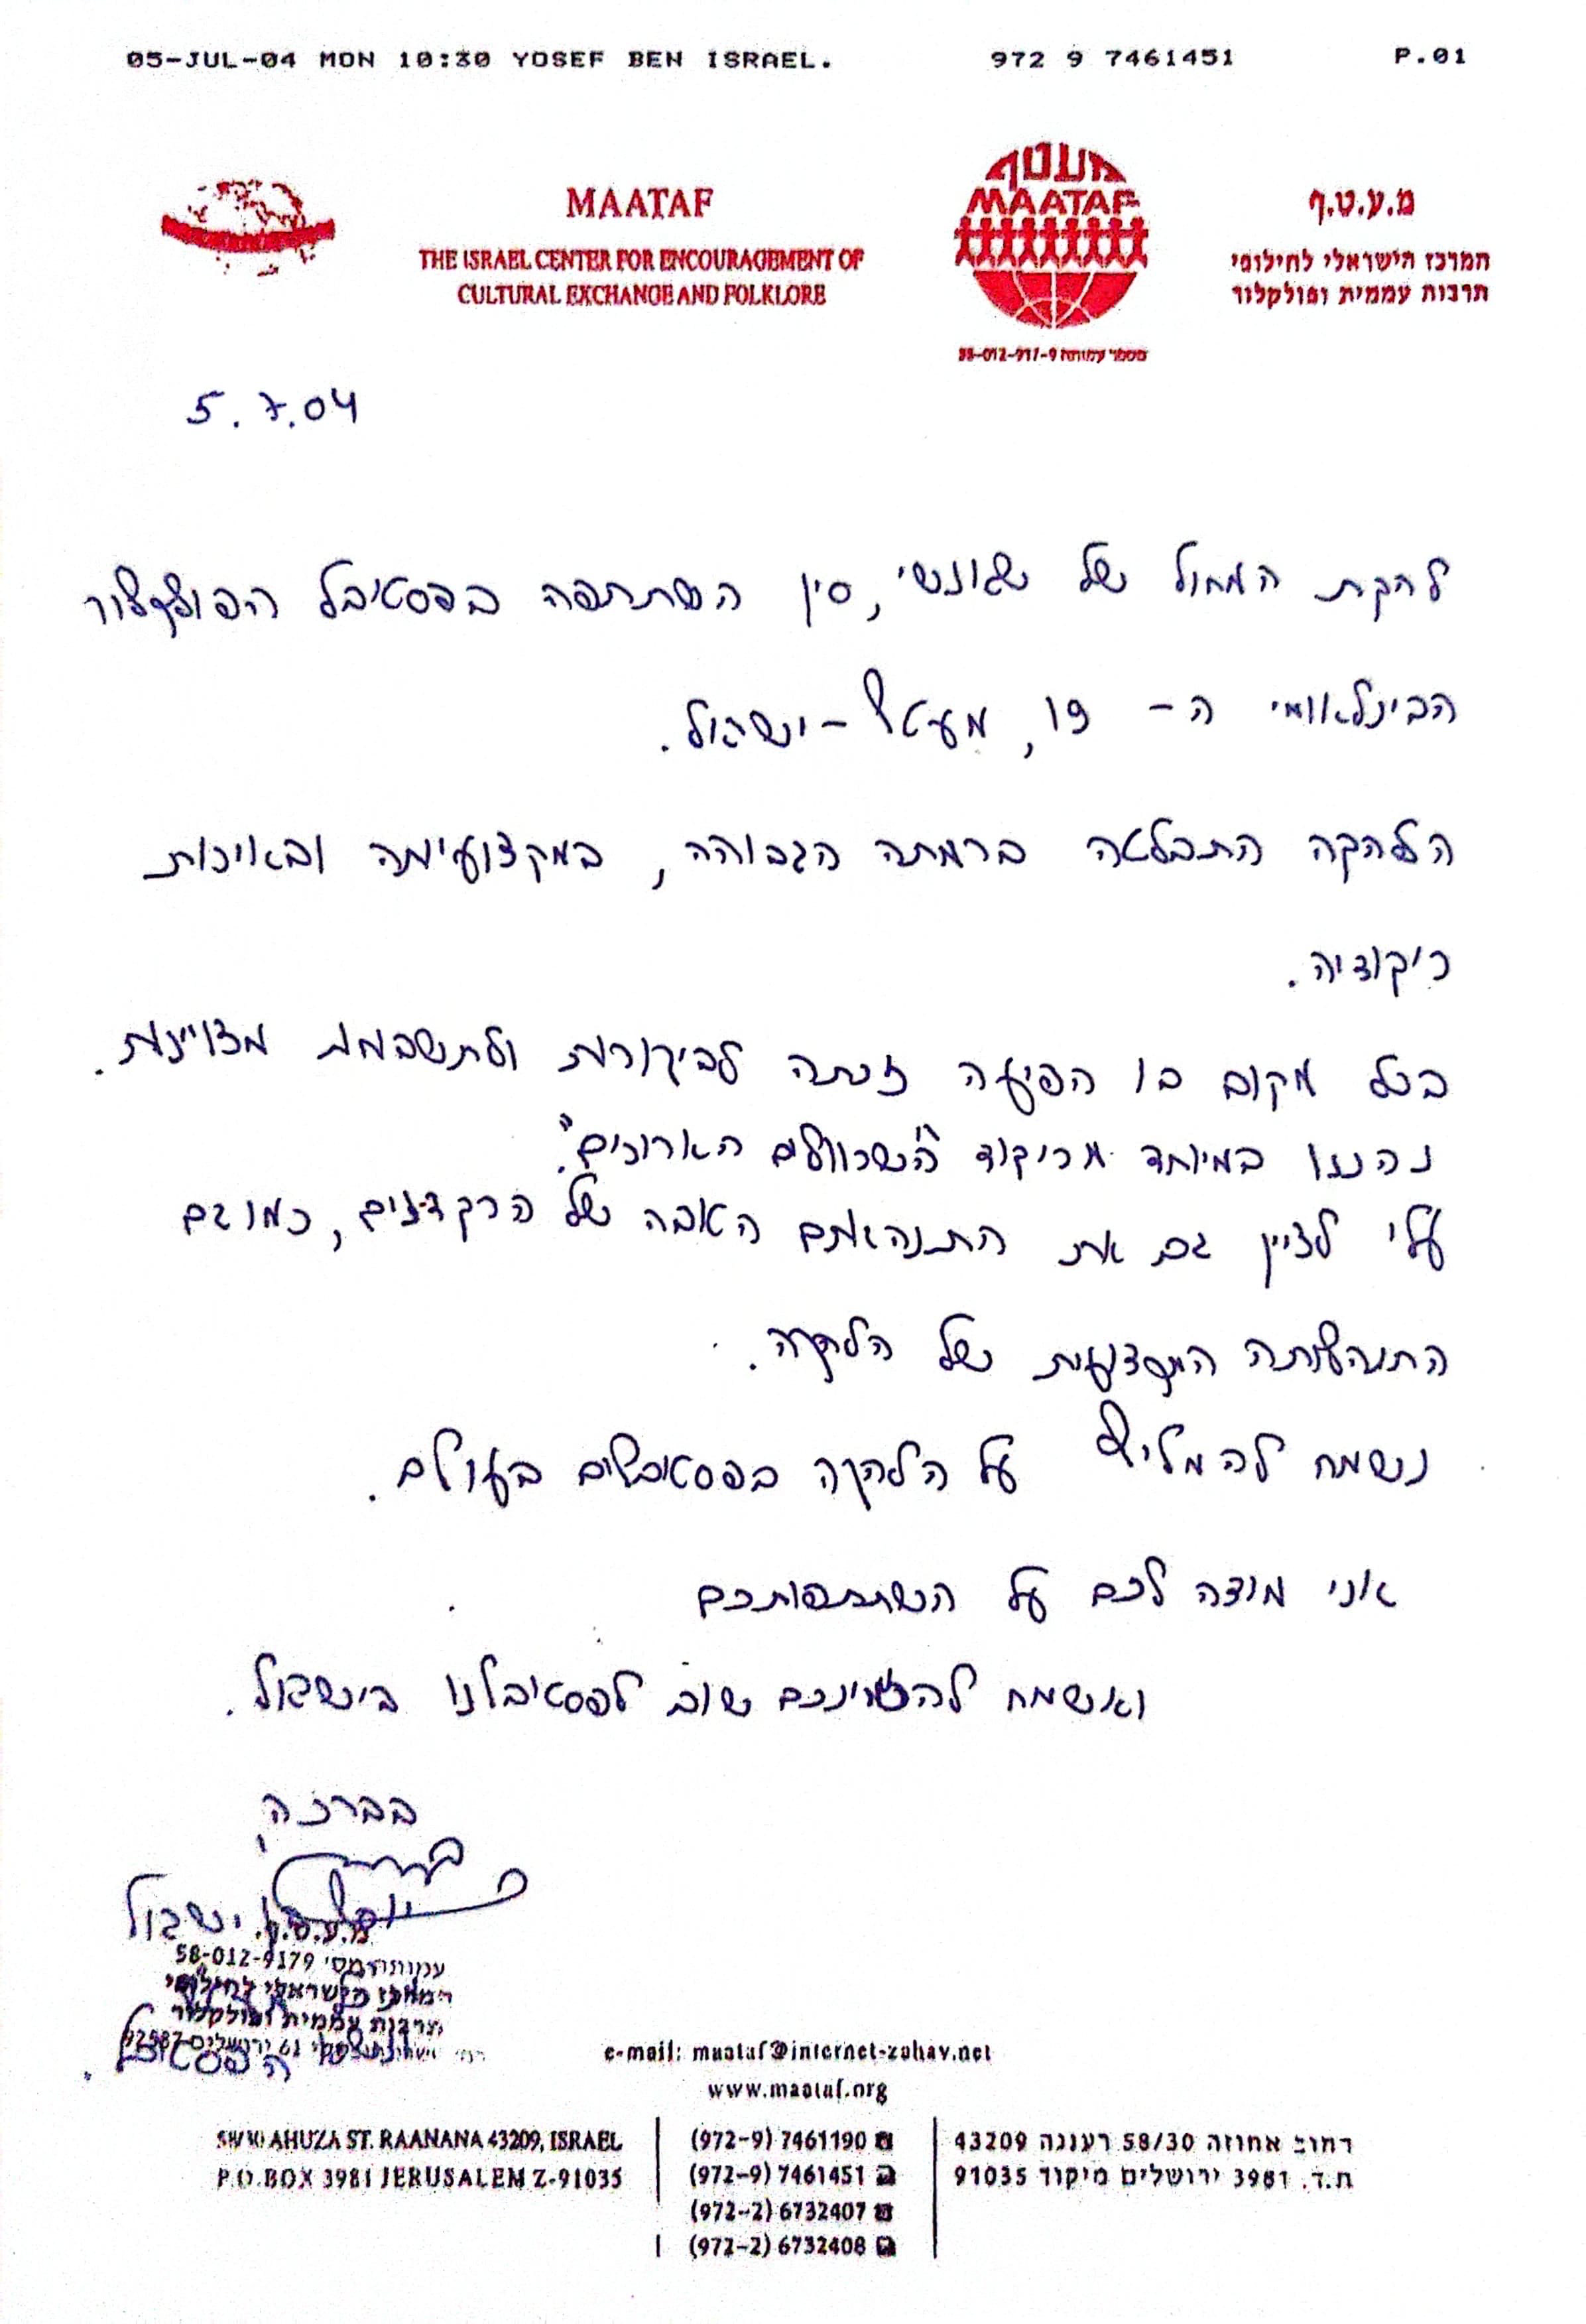 05-JUL-04 MON 10:30 YOSEF BEN ISRAEL. 972 9 7461451 P.01
MAATAF
THE ISRAEL CENTER FOR ENCOURAGEMENT OF
CULTURAL EXCHANGE AND FOLKLORE
מעטף
MAATAF
מספר עמותה 58-012-917-9
מ.ע.ט.ף
המרכז הישראלי לחילופי
תרבות עממית ופולקלור
5.7.04
להקת המחול של שגונשי, סין השתתפה בפסטיבל הפולקלור
הבינלאומי ה- 19, מעטף - ישראל.
הלהקה התבלטה ברמתה הגבוהה, במקצועיותה ובאיכות
ריקודיה.
בכל מקום בו הופיעה זכתה לביקורות ולתשבחות מצויינות.
נהננו במיוחד מריקוד "השרוולים הארוכים".
עלי לציין גם את התנהגותם האובה של הרקדנים, כמו גם
התנהלותה המקצועית של הלהקה.
נשמח להמליץ על הלהקה בפסטיבלים בעולם.
אני מודה לכם על השתתפותכם
ואשמח להזמינכם שוב לפסטיבלנו בישראל.
בברכה,
יוסף בן ישראל
מ.ע.ט.ף.
עמותה מס' 58-012-9179
המרכז הישראלי לחילופי
תרבות עממית ופולקלור
הפסטיבל.
e-mail: maataf@internet-zahav.net
www.maataf.org
58/30 AHUZA ST. RAANANA 43209, ISRAEL
P.O.BOX 3981 JERUSALEM Z-91035
(972-9) 7461190
(972-9) 7461451
(972-2) 6732407
(972-2) 6732408
רחוב אחוזה 58/30 רעננה 43209
ת.ד. 3981 ירושלים מיקוד 91035